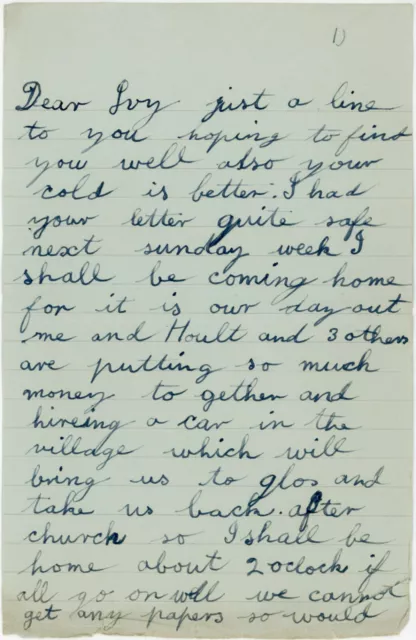 1)
Dear Ivy just a line
to you hoping to find
you well also your
cold is better. I had
your letter quite safe
next sunday week I
shall be coming home
for it is our day out
me and Hoult and 3 others
are putting so much
money to gether and
hireing a car in the
village which will
bring us to glos and
take us back. after
church so I shall be
home about 2 oclock if
all go on well we cannot
get any papers so would